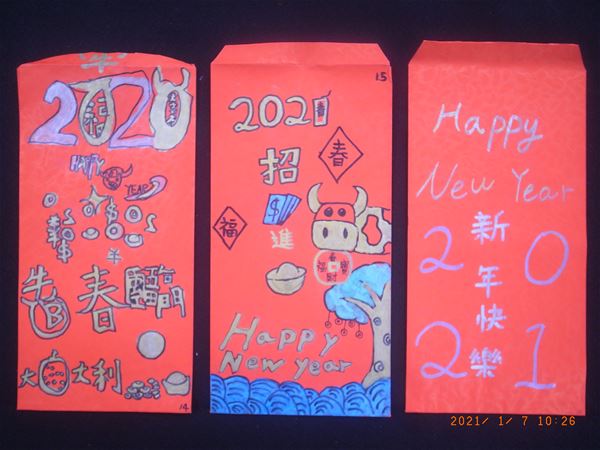 2020
福
YEAR
春
大
大利
14
15
2021
招
春
$
進
福
財
Happy
New year
Happy
New Year
新年快樂
2 0
2 1
2021/ 1/ 7 10:26